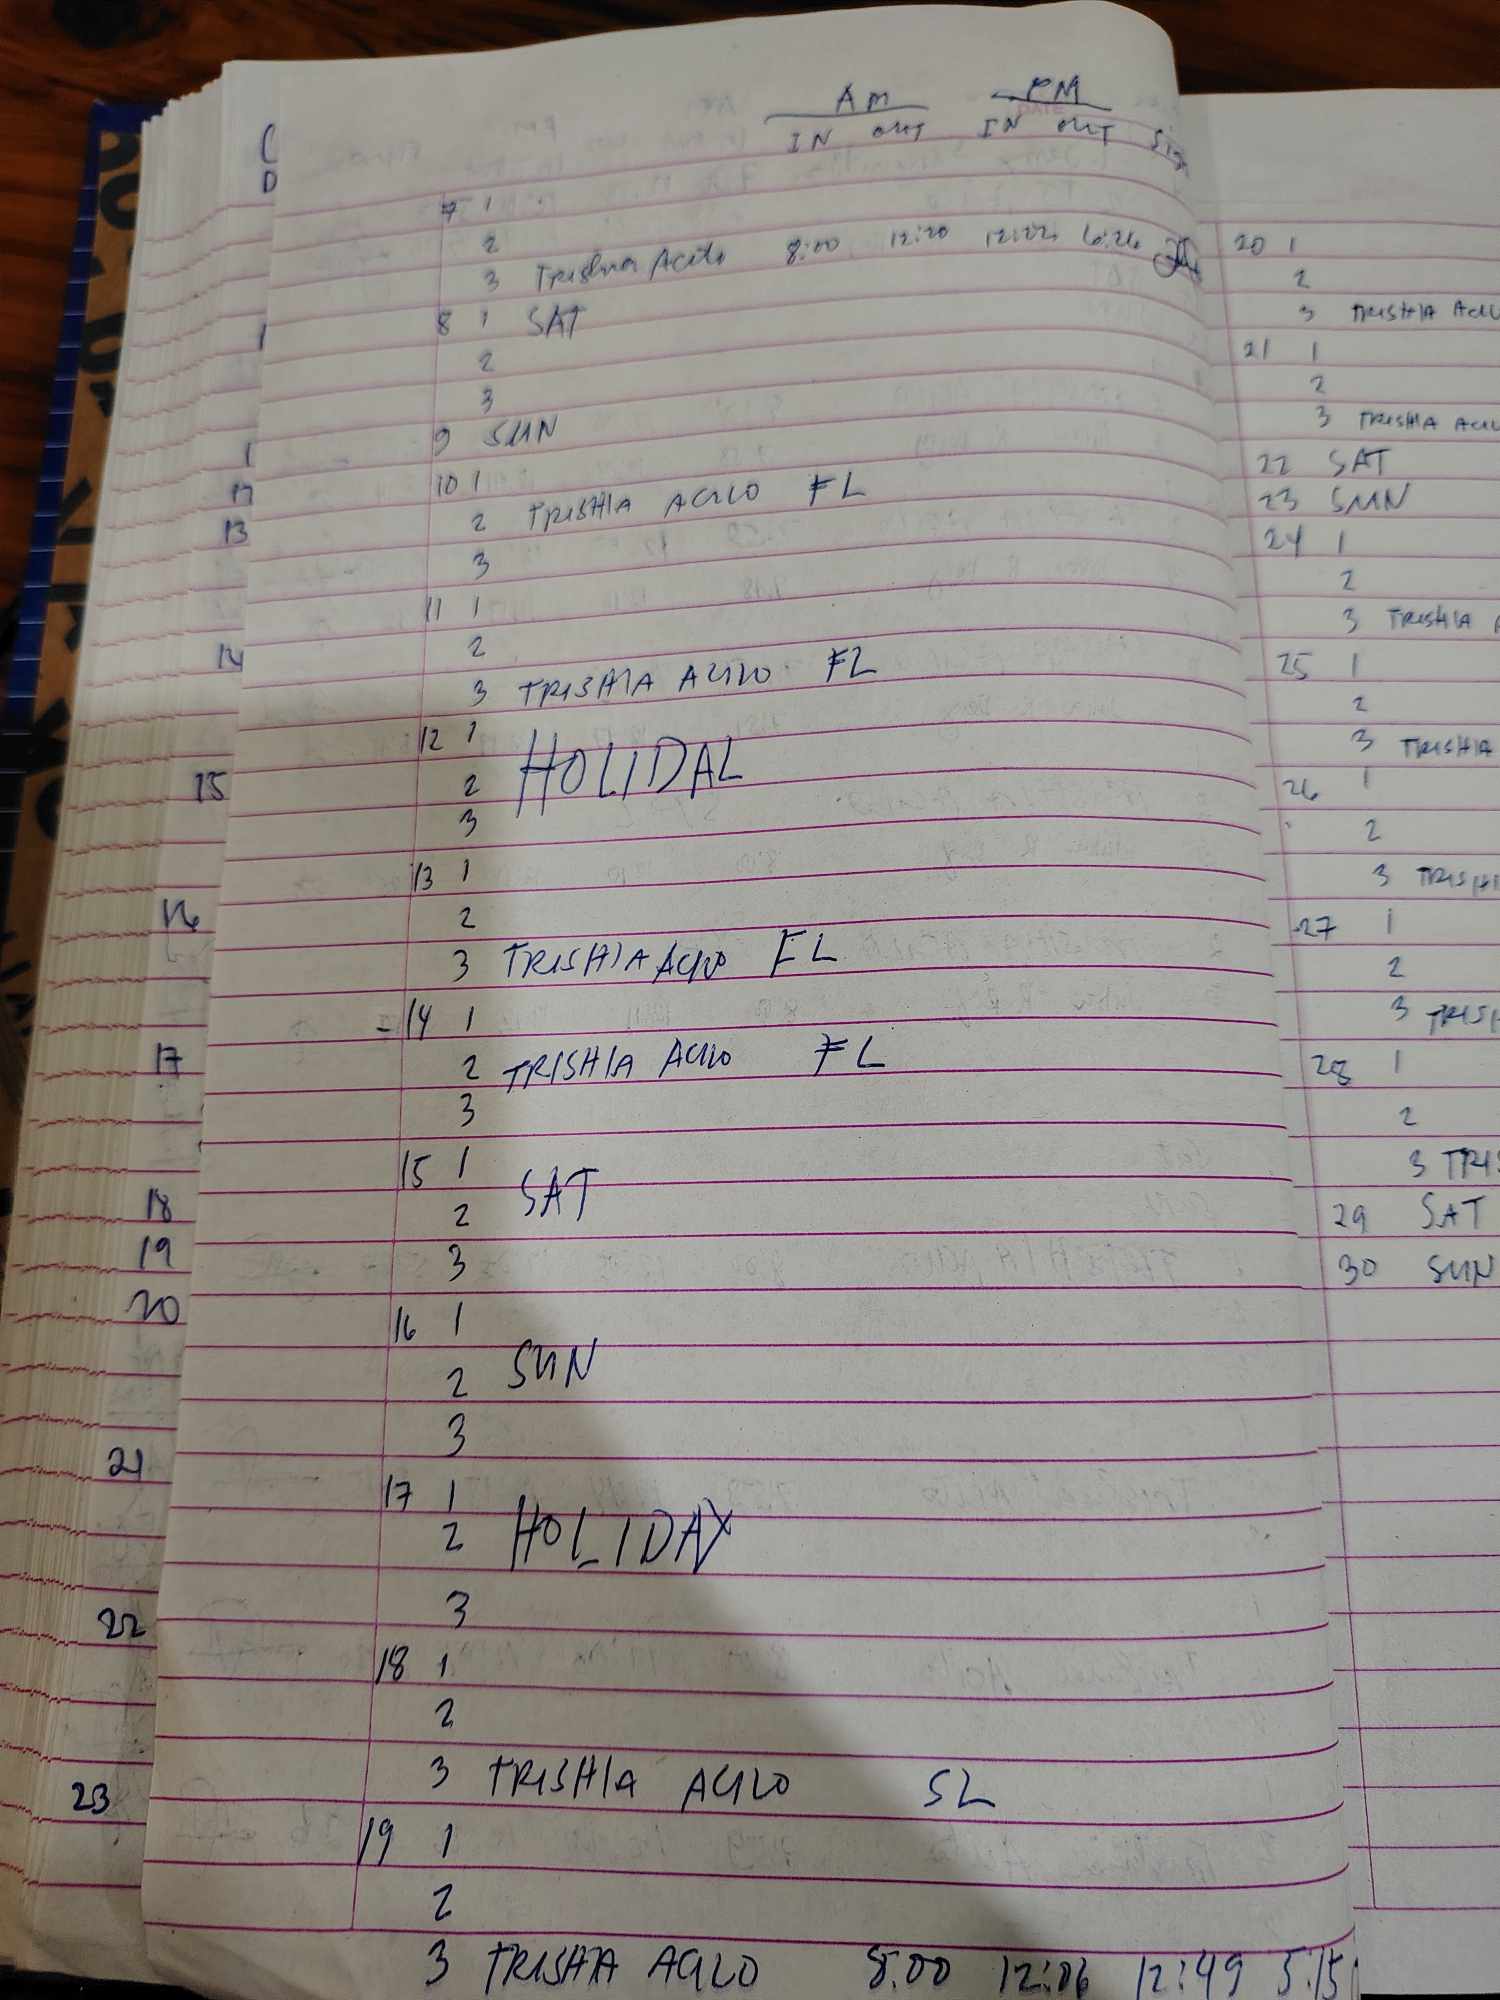 AM PM
IN OUT IN OUT
7 1
2
3 Trishia Acilo 8:00 12:20 12:22 6:26
8 1 SAT
2
3
9 SUN
10 1
2 TRISHIA ACILO FL
3
11 1
2
3 TRISHIA ACILO FL
12 1
2 HOLIDAL
3
13 1
2
3 TRISHIA ACILO FL
- 14 1
2 TRISHIA ACILO FL
3
15 1
2 SAT
3
16 1
2 SUN
3
17 1
2 HOLIDAY
3
18 1
2
3 TRISHIA ACILO SL
19 1
2
3 TRISHIA ACILO 8:00 12:06 12:49 5:15
20 1
2
3 TRISHIA
21 1
2
3 TRISHIA
22 SAT
23 SUN
24 1
2
3 TRISHIA
25 1
2
3 TRISHIA
26 1
2
3 TRISHI
27 1
2
3 TRISH
28 1
2
3 TRIS
29 SAT
30 SUN
13
14
15
16
17
18
19
20
21
22
23